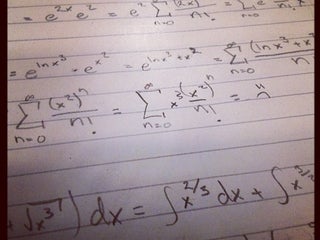 = e^{2x} e^2 = e^2 \sum_{n=0}^{\infty} \frac{(2x)^n}{n!} = \sum_{n=0}^{\infty} e
= e^{\ln x^3} \cdot e^{x^2} = e^{\ln x^3 + x^2} = \sum_{n=0}^{\infty} \frac{(\ln x^3 + x^2
\sum_{n=0}^{\infty} \frac{(x^2)^n}{n!} = \sum_{n=0}^{\infty} x^3 \frac{(x^2)^n}{n!} =
+ \sqrt{x^3}) dx = \int x^{2/3} dx + \int x^{3/2}